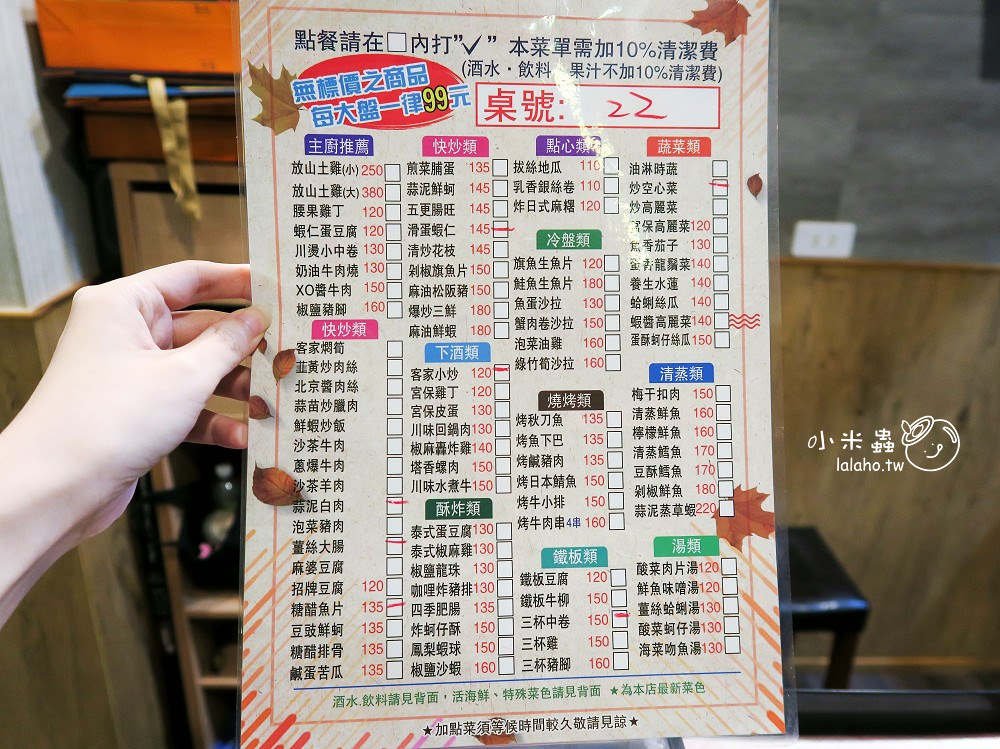 點餐請在□內打"✓" 本菜單需加10%清潔費
(酒水．飲料．果汁不加10%清潔費)
無標價之商品
每大盤一律99元
桌號: 22
主廚推薦
放山土雞(小) 250
放山土雞(大) 380
腰果雞丁 120
蝦仁蛋豆腐 120
川燙小中卷 130
奶油牛肉燒 130
XO醬牛肉 150
椒鹽豬腳 160
快炒類
客家燜筍
韭黃炒肉絲
北京醬肉絲
蒜苗炒臘肉
鮮蝦炒飯
沙茶牛肉
蔥爆牛肉
沙茶羊肉
蒜泥白肉
泡菜豬肉
薑絲大腸
麻婆豆腐
招牌豆腐 120
糖醋魚片 135
豆豉鮮蚵 135
糖醋排骨 135
鹹蛋苦瓜 135
快炒類
煎菜脯蛋 135
蒜泥鮮蚵 145
五更腸旺 145
滑蛋蝦仁 145
清炒花枝 145
剁椒旗魚片 150
麻油松阪豬 150
爆炒三鮮 180
麻油鮮蝦 180
下酒類
客家小炒 120
宮保雞丁 120
宮保皮蛋 130
川味回鍋肉 130
椒麻轟炸雞 140
塔香螺肉 150
川味水煮牛 150
酥炸類
泰式蛋豆腐 130
泰式椒麻雞 130
椒鹽龍珠 130
咖哩炸豬排 130
四季肥腸 135
炸蚵仔酥 150
鳳梨蝦球 150
椒鹽沙蝦 160
點心類
拔絲地瓜 110
乳香銀絲卷 110
炸日式麻糬 120
冷盤類
旗魚生魚片 120
鮭魚生魚片 180
魚蛋沙拉 130
蟹肉卷沙拉 150
泡菜油雞 160
綠竹筍沙拉 160
燒烤類
烤秋刀魚 135
烤魚下巴 135
烤鹹豬肉 135
烤日本鯖魚 150
烤牛小排 150
烤牛肉串4串 160
鐵板類
鐵板豆腐 120
鐵板牛柳 150
三杯中卷 150
三杯雞 150
三杯豬腳 160
蔬菜類
油淋時蔬
炒空心菜
炒高麗菜
宮保高麗菜 120
魚香茄子 130
蛋香龍鬚菜 140
養生水蓮 140
蛤蜊絲瓜 140
蝦醬高麗菜 140
蛋酥蚵仔絲瓜 150
清蒸類
梅干扣肉 150
清蒸鮮魚 160
檸檬鮮魚 160
清蒸鱈魚 170
豆酥鱈魚 170
剁椒鮮魚 180
蒜泥蒸草蝦 220
湯類
酸菜肉片湯 120
鮮魚味噌湯 120
薑絲蛤蜊湯 130
酸菜蚵仔湯 130
海菜吻魚湯 130
酒水.飲料請見背面，活海鮮、特殊菜色請見背面 ★為本店最新菜色
★加點菜須等候時間較久敬請見諒★
小米蟲
lalaho.tw